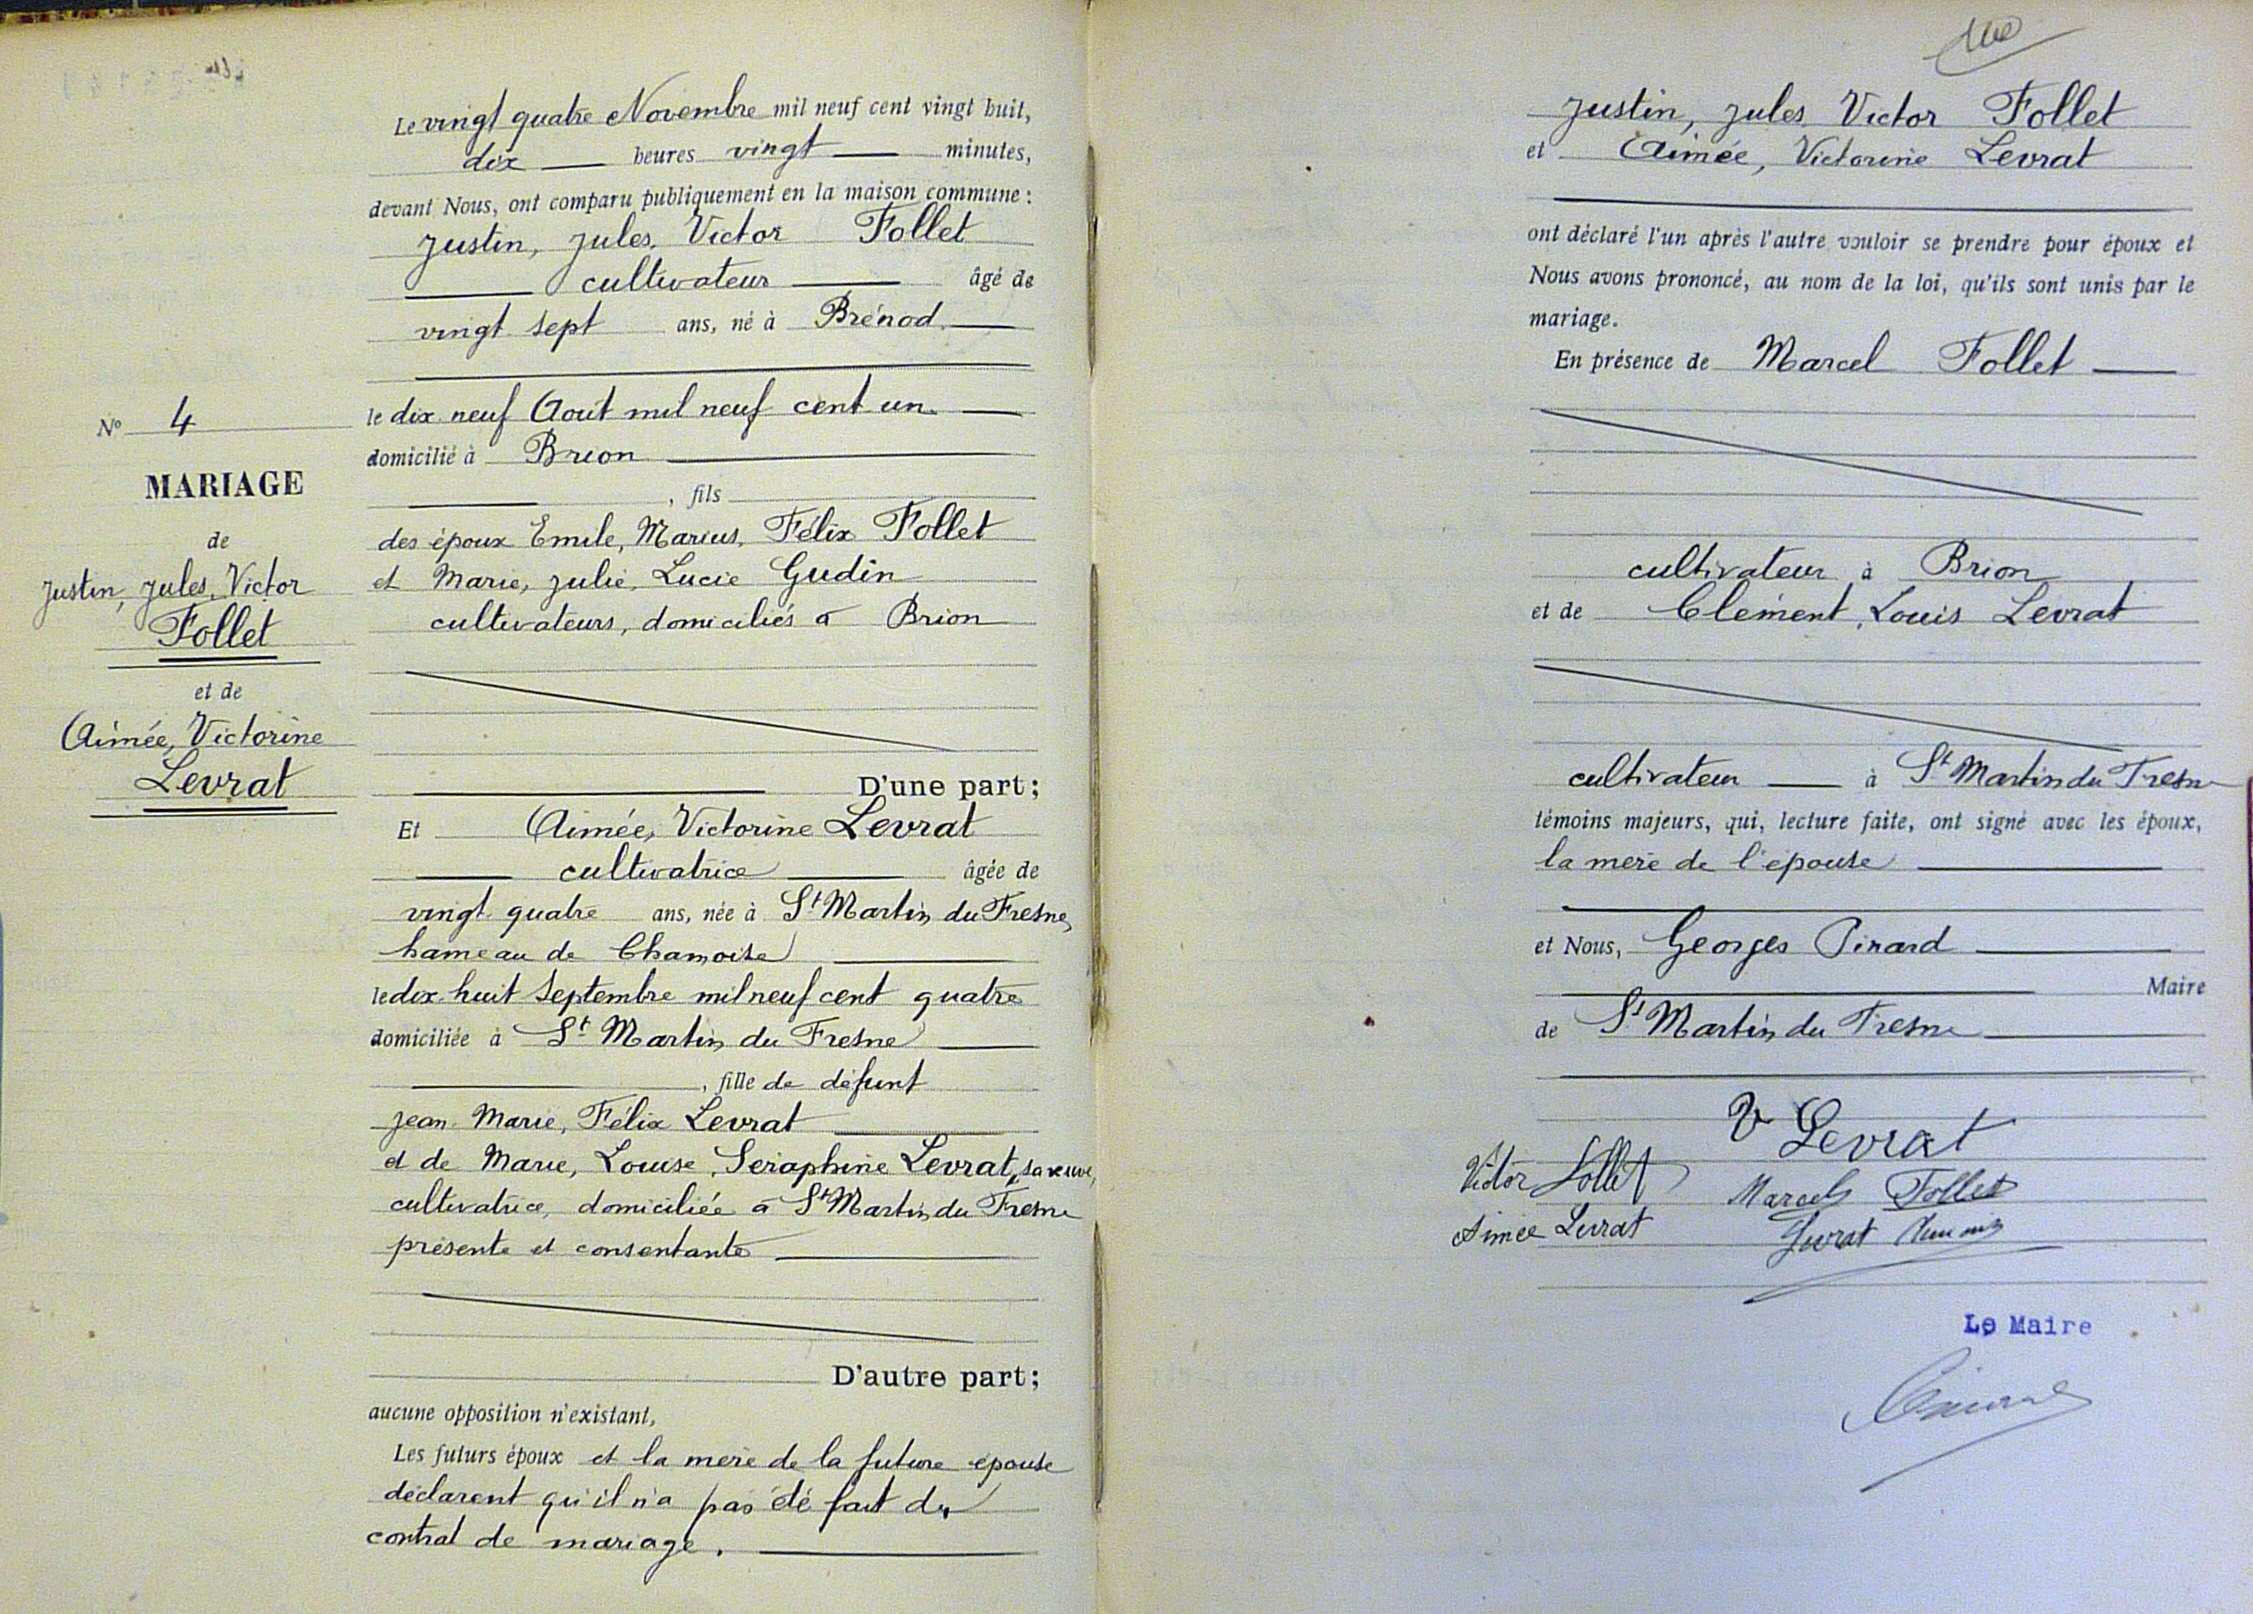 Le vingt quatre Novembre mil neuf cent vingt huit,
dix heures vingt minutes,
devant Nous, ont comparu publiquement en la maison commune :
Justin, Jules, Victor Follet
cultivateur âgé de
vingt sept ans, né à Brénod
le dix neuf Août mil neuf cent un
domicilié à Brion
, fils
des époux Emile, Marius, Félix Follet
et Marie, Julie, Lucie Gudin
cultivateurs, domiciliés à Brion
N° 4
MARIAGE
de
Justin, Jules, Victor
Follet
et de
Aimée, Victorine
Levrat
D'une part ;
Et Aimée, Victorine Levrat
cultivatrice âgée de
vingt quatre ans, née à St Martin du Fresne,
hameau de Chamoise
le dix huit Septembre mil neuf cent quatre
domiciliée à St Martin du Fresne
, fille de défunt
Jean Marie, Félix Levrat
et de Marie, Louise, Seraphine Levrat, sa veuve,
cultivatrice, domiciliée à St Martin du Fresne
présente et consentante
D'autre part ;
aucune opposition n'existant,
Les futurs époux et la mère de la future épouse
déclarent qu'il n'a pas été fait de
contrat de mariage.
Justin, Jules Victor Follet
et Aimée, Victorine Levrat
ont déclaré l'un après l'autre vouloir se prendre pour époux et
Nous avons prononcé, au nom de la loi, qu'ils sont unis par le
mariage.
En présence de Marcel Follet
cultivateur à Brion
et de Clément, Louis Levrat
cultivateur à St Martin du Fresne
témoins majeurs, qui, lecture faite, ont signé avec les époux,
la mère de l'épouse
et Nous, Georges Pinard
Maire
de St Martin du Fresne
V Levrat
Victor Follet
Marcel Follet
Aimée Levrat
Levrat
Le Maire